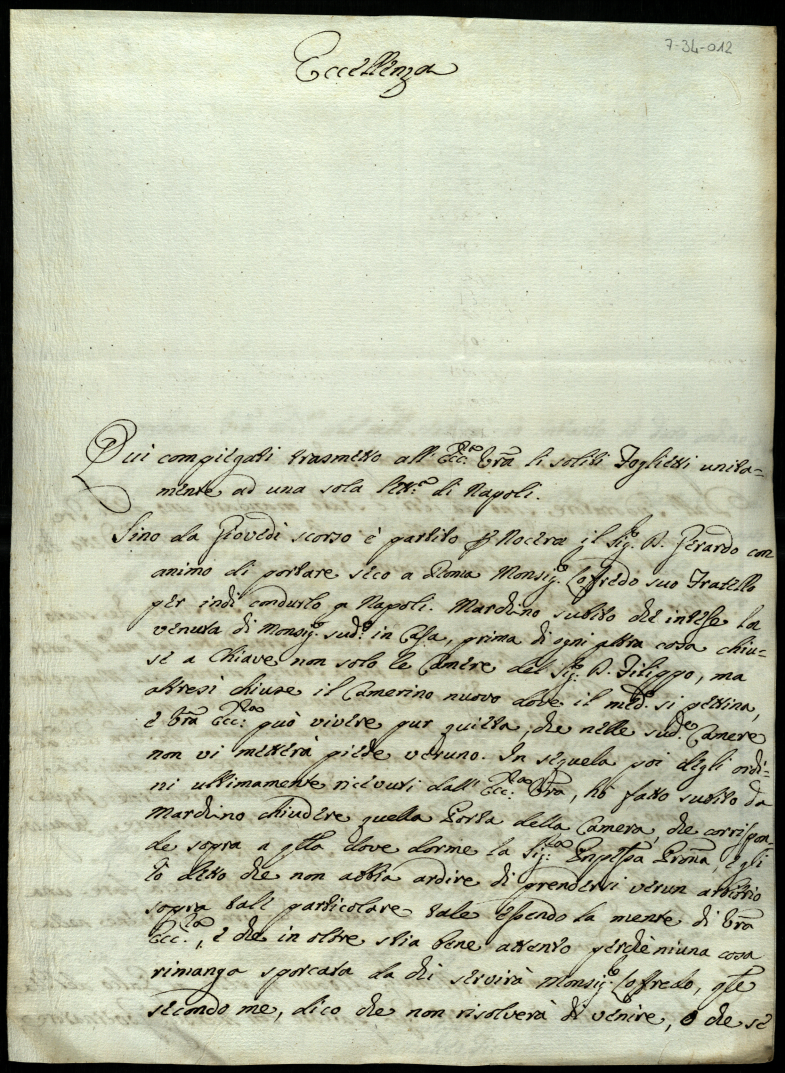 7-34-012
Eccellenza
Qui compiegati trasmetto all' Ecc.za Vra li soliti Foglietti unita=
mente ad una sola lett.a di Napoli.
Sino da Giovedì scorso è partito p Nocera il Sig.e D. Gerardo con
animo di portare seco a Roma Monsig.e Loffredo suo Fratello
per indi condurlo a Napoli. Mardino subito che intese la
venuta di Monsig.e sud.o in Casa, prima di ogni altra cosa chiu=
se a Chiave non solo le Camere del Sig.e D. Filippo, ma
altresì chiuse il Camerino nuovo dove il med.o si pettina,
e Vra Ecc.za può vivere pur quieta, che nelle sud.e Camere
non vi metterà piede veruno. In sequela poi degli ordi=
ni ultimamente ricevuti dall' Ecc.za Vra, hò fatto subito da
Mardino chiudere quella Porta della Camera, che corrispon=
de sopra a qlla dove dorme la Sig.ra Pnpessa Prona, e gli
hò detto che non abbia ardire di prendersi verun arbitrio
sopra tale particolare tale essendo la mente di Vra
Ecc.za, e che in oltre stia bene attento perchè niuna cosa
rimanga sporcata da chi servirà Monsig.e Loffredo, qle
secondo me, dico che non risolverà di venire, o che se